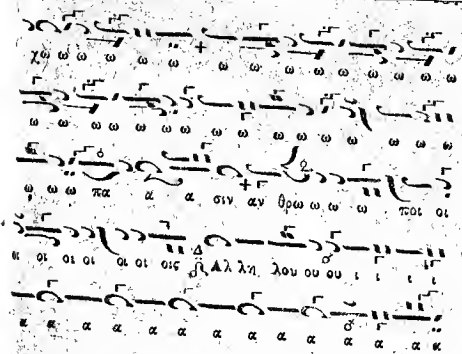 χω ω ω ω ω ω ω ω ω ω ω ω ω
ω ω ω ω ω ω ω ω ω ω ω ω ω ω ω ω
ω ω ω πα α α σιν αν θρω ω ω ω ποι οι
οι οι οι οι οι οι οις Αλ λη λου ου ου ι ι ι ι
α α α α α α α α α α α α α